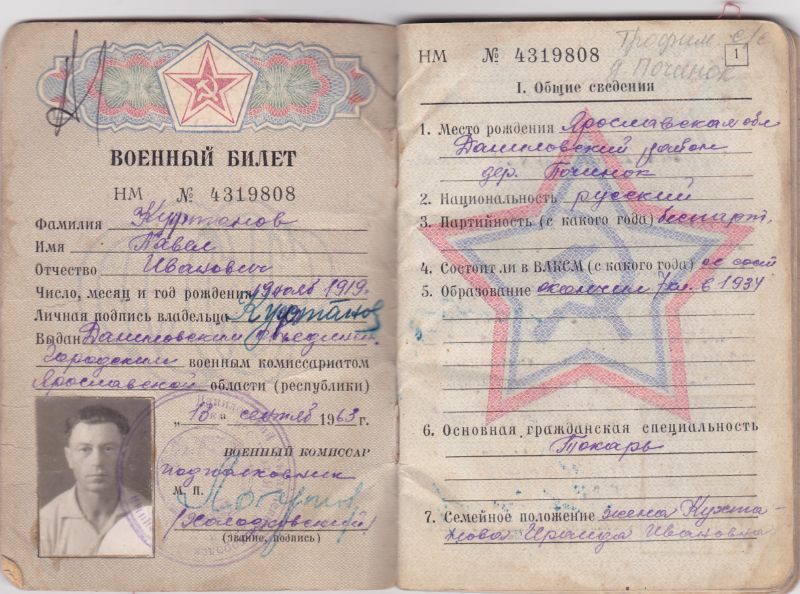 ВОЕННЫЙ БИЛЕТ
НМ № 4319808
Фамилия Куртанов
Имя Павел
Отчество Иванович
Число, месяц и год рождения июль 1919г.
Личная подпись владельца
Выдан Даниловским
Городским военным комиссариатом
Ярославской области (республики)
„13“ сентяб 1963 г.
ВОЕННЫЙ КОМИССАР
подполковник
М. П.
(звание, подпись)
НМ № 4319808
Трофим. с/с
1
д Починок
I. Общие сведения
1. Место рождения Ярославская обл
Даниловский район
дер. Починок
2. Национальность русский
3. Партийность (с какого года) беспарт.
4. Состоит ли в ВЛКСМ (с какого года) не сост
5. Образование окончил 7 кл. в 1934
6. Основная гражданская специальность
Токарь
7. Семейное положение жена
Ивановна